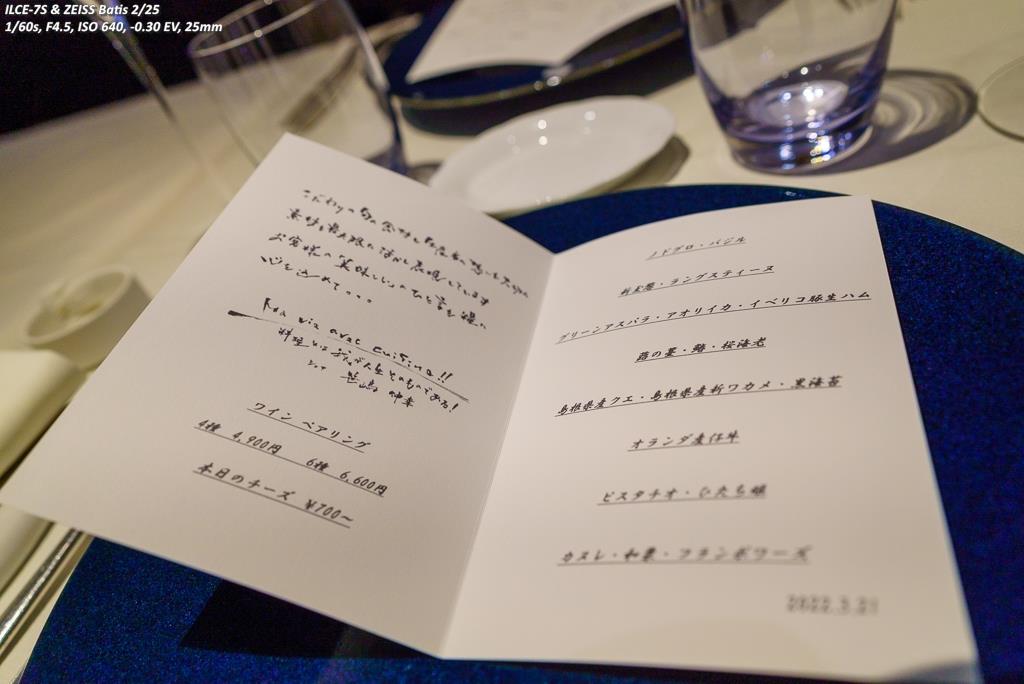 ILCE-7S & ZEISS Batis 2/25
1/60s, F4.5, ISO 640, -0.30 EV, 25mm
こだわりの旬の食材を
素材を最大限に活かし表現しています
お客様の"美味しい"のひと言を
心を込めて...
avec cuisine!!
料理とは我が人生そのものである!
ワイン ペアリング
4種 4,900円 6種 6,600円
本日のチーズ ¥700~
ノドグロ・バジル
新玉葱・ラングスティーヌ
グリーンアスパラ・アオリイカ・イベリコ豚生ハム
蕗の薹・鰆・桜海老
島根県産クエ・島根県産新ワカメ・黒海苔
オランダ産仔牛
ピスタチオ・ひたち姫
カヌレ・和栗・フランボワーズ
2022.3.21